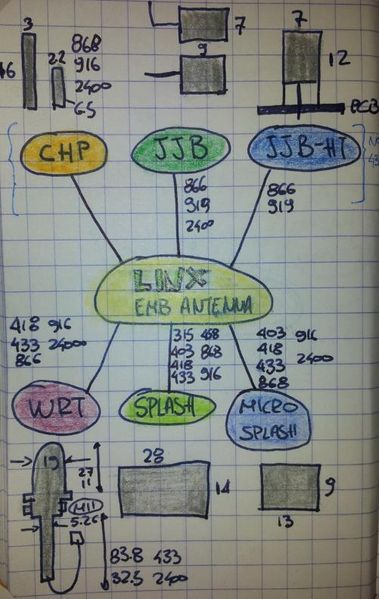 3
22
868
916
2400
GS
16
7
9
7
12
PCB
CHP
JJB
JJB-HT
866
919
2400
866
919
LINX
EMB ANTENNA
418 916
433 2400
866
315 418
403 868
418
433 916
403 916
418
433 2400
868
WRT
SPLASH
MICRO
SPLASH
19
27
11
M11
5.26
83.8 433
32.5 2400
28
14
9
13